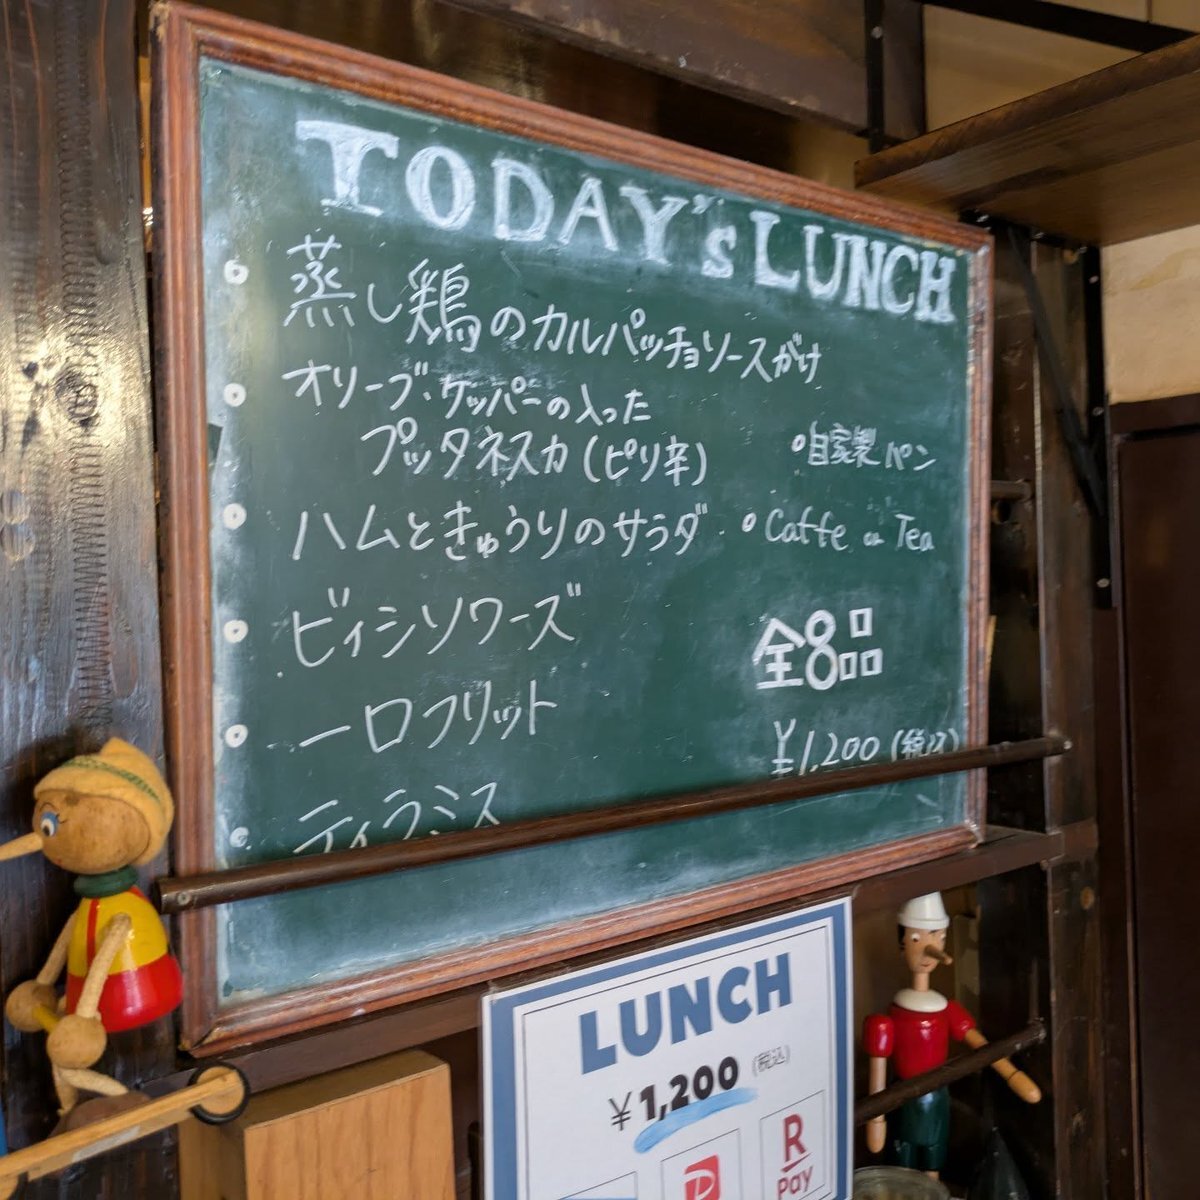 TODAY's LUNCH
蒸し鶏のカルパッチョソースがけ
オリーブ・ケッパーの入った
プッタネスカ(ピリ辛)
ハムときゅうりのサラダ
ビィシソワーズ
一口フリット
ティラミス
自家製パン
Caffe or Tea
全8品
¥1,200(税込)
LUNCH
¥1,200(税込)
P
R
Pay